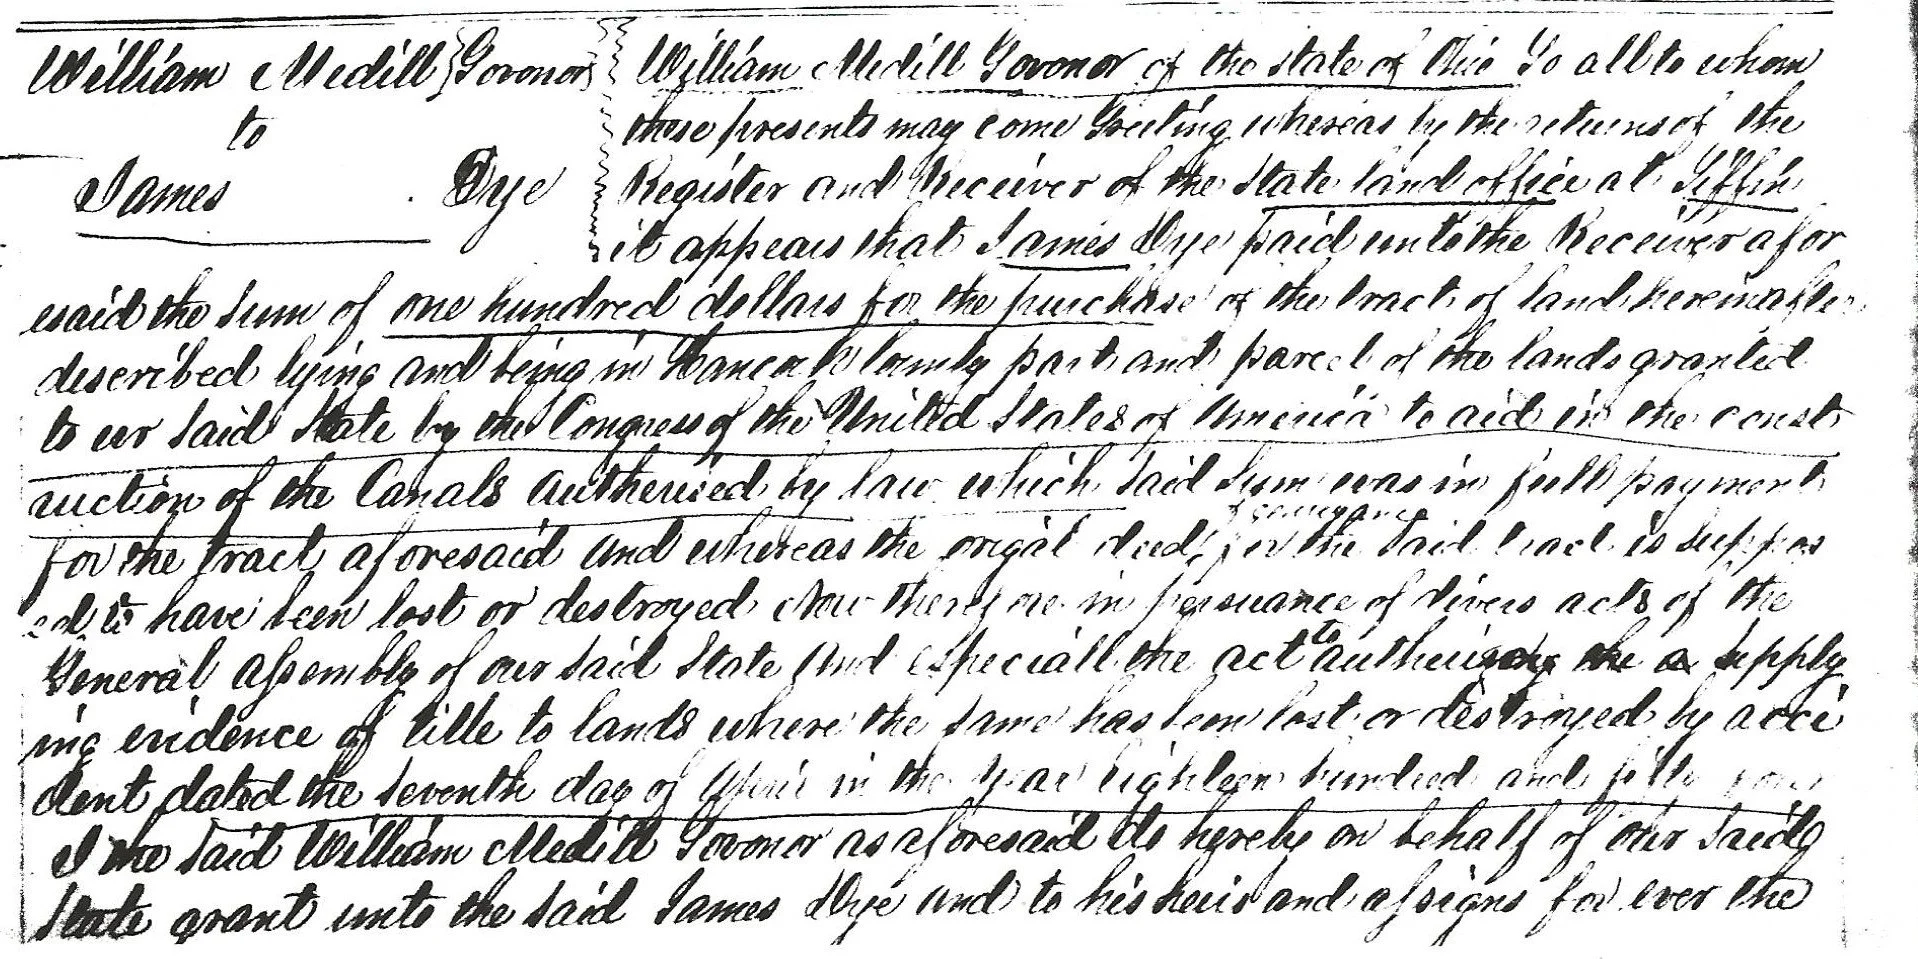 William Medill Govonor
to
James Dye
William Medill Govonor of the State of Ohio To all to whom
these presents may come Greeting whereas by the returns of the
Register and Receiver of the State land office at Tiffin
it appears that James Dye paid unto the Receiver afor
esaid the sum of one hundred dollars for the purchase of the tract of land hereinafter
described lying and being in Hancock County part and parcel of the lands granted
to our said State by the Congress of the United States of America to aid in the const
ruction of the Canals autherised by law which said sum was in full payment
for the tract aforesaid and whereas the origal deed of conveyance for the said tract is suppos
ed to have been lost or destroyed Now therefore in persuance of divers acts of the
General assembly of our said State and especiall the act to autherise the a supply
ing evidence of title to lands where the same has been lost or destroyed by acci
dent dated the seventh day of April in the year Eighteen hundred and fifty
I the said William Medill Govonor as aforesaid do hereby on behalf of our said
State grant unto the said James Dye and to his heirs and assigns for ever the